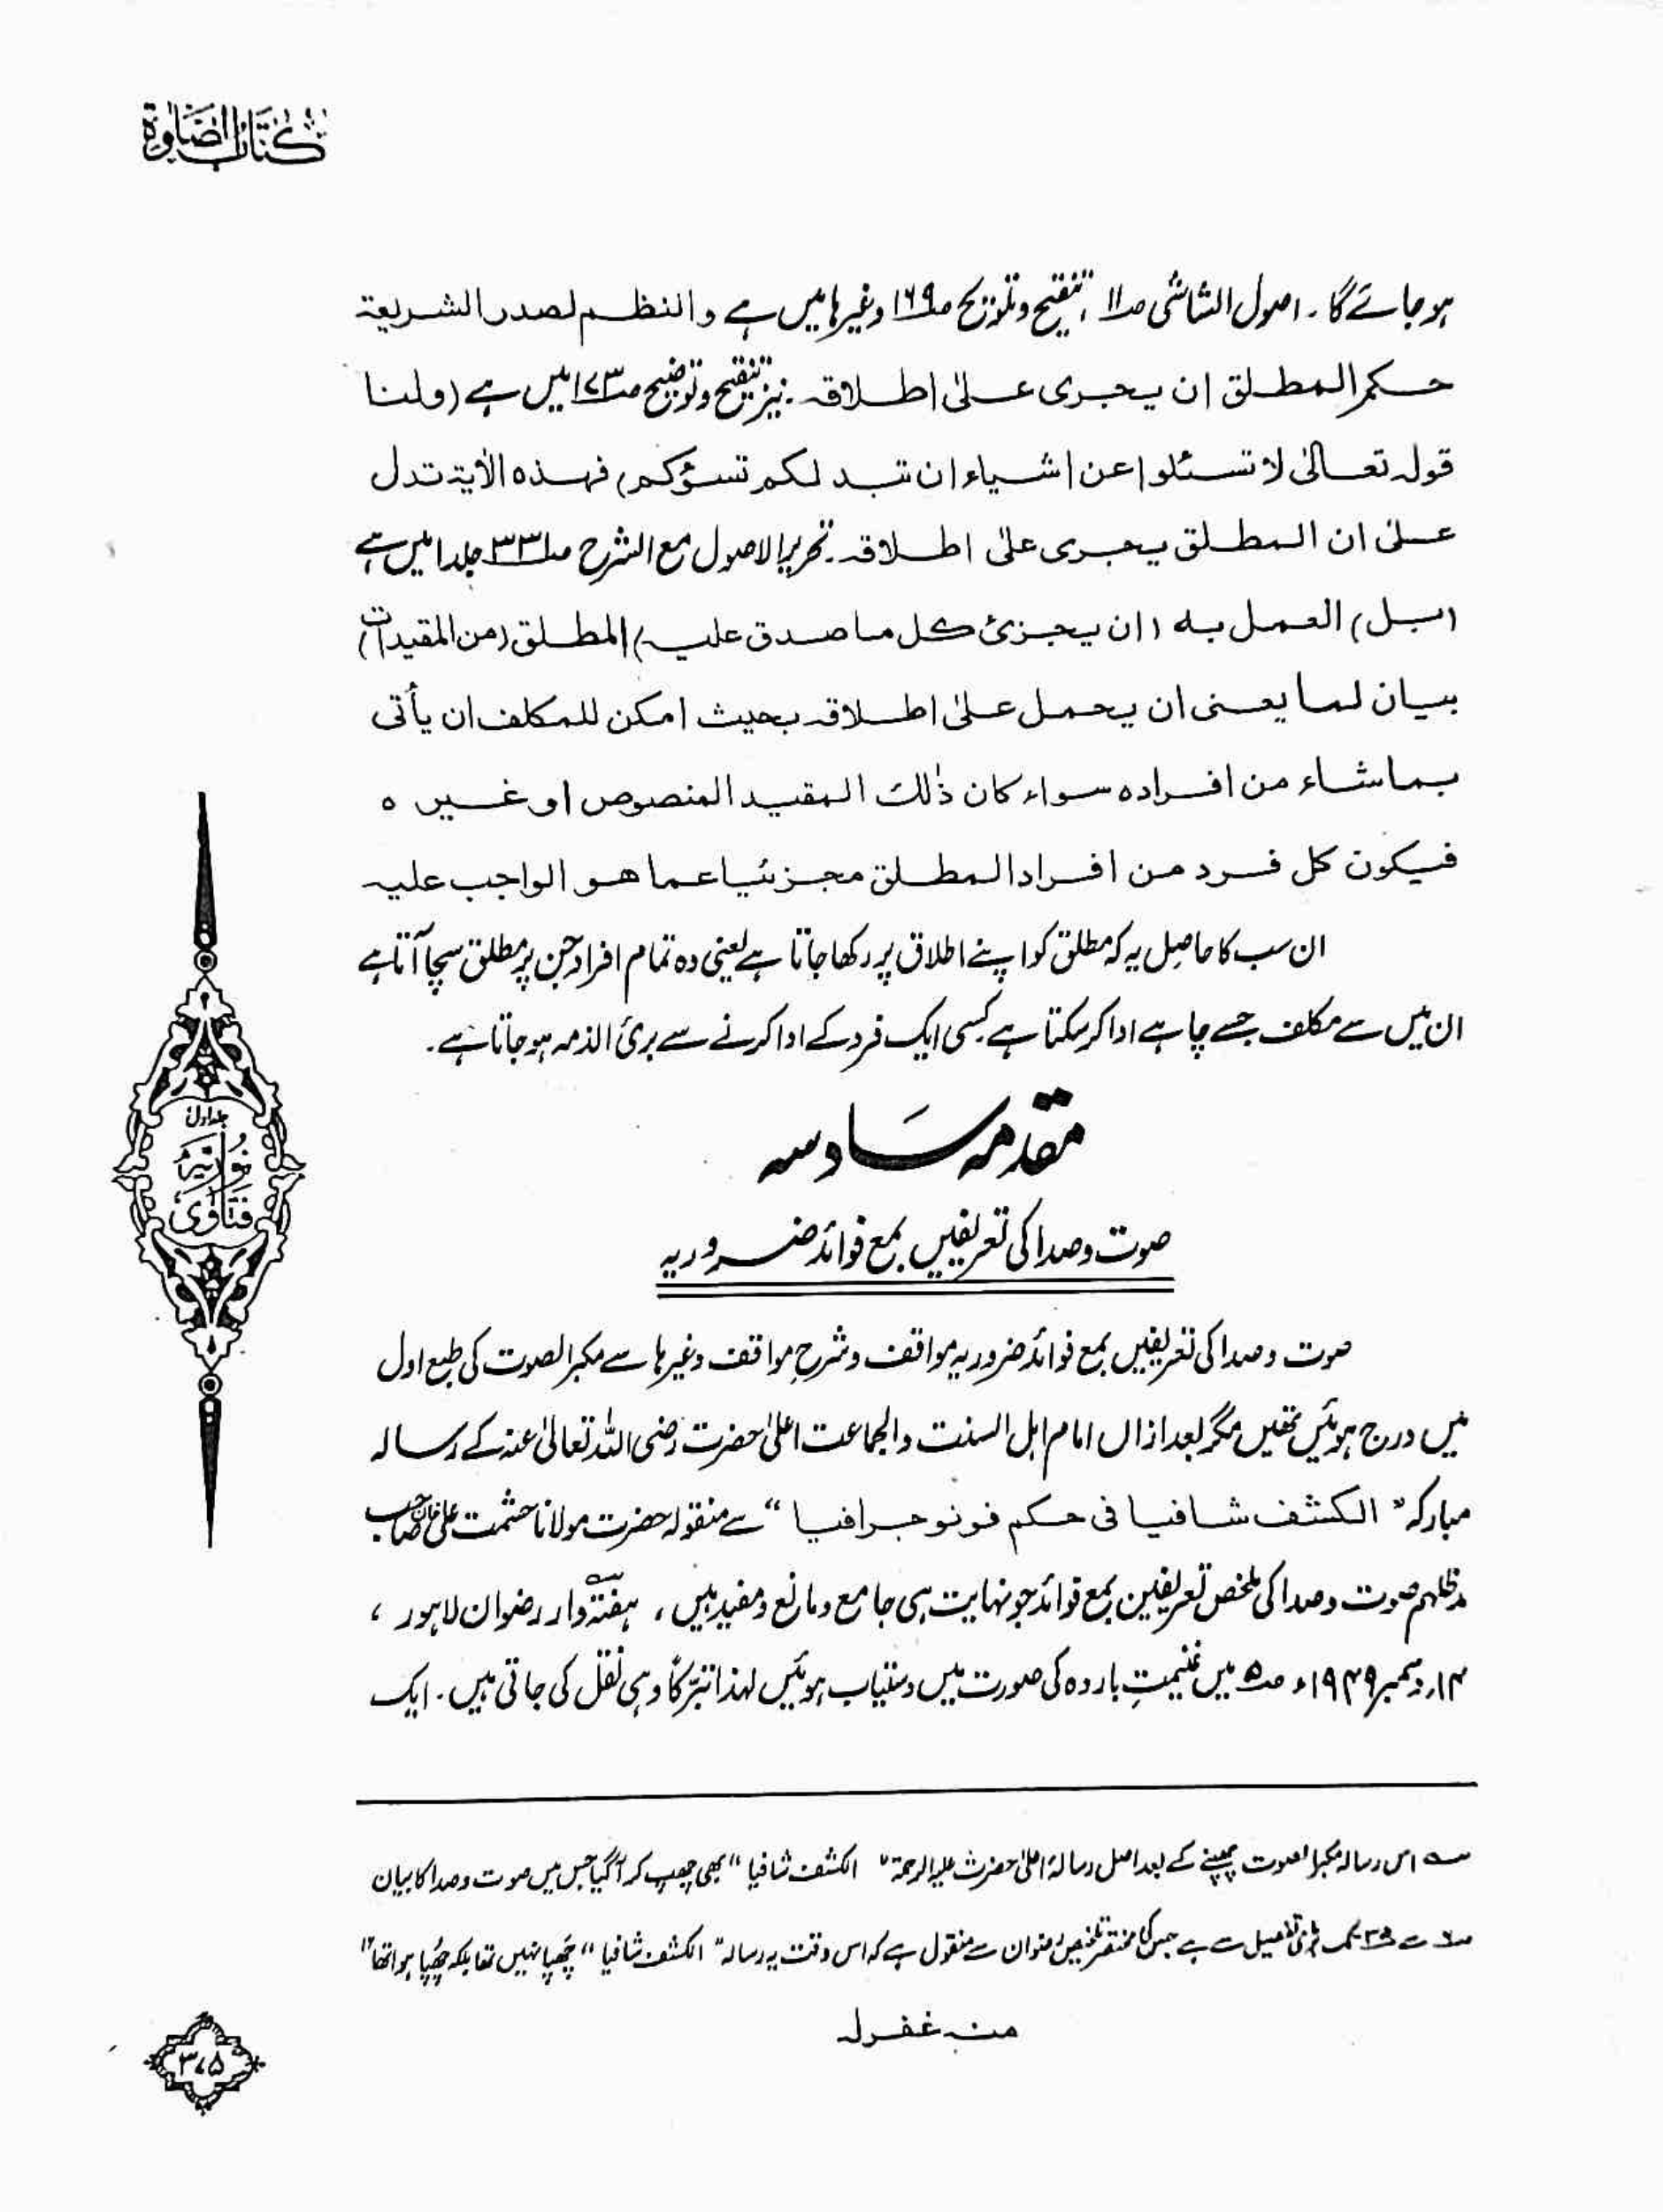 كتاب الصلوة
ہو جائے گا ۔ اصول الشاشی صـ۱۱ ، تنقیح و تلویح صـ۱۶۹ وغیرہا میں ہے والنظم لصدر الشریعۃ
حکم المطلق ان یجری علیٰ اطلاقہ ۔ نیز تنقیح و توضیح صـ۱۷۳ میں ہے (ولنا
قولہ تعالیٰ لا تسئلوا عن اشیاء ان تبد لکم تسؤکم) فہذہ الاٰیۃ تدل
علیٰ ان المطلق یجری علیٰ اطلاقہ ۔ تحریر الاصول مع الشرح صـ۳۳۱ جلد ۱ میں ہے
(بل) العمل بہ (ان یجزئ کل ما صدق علیہ) المطلق (من المقیدات)
بیان لما یعنی ان یحمل علیٰ اطلاقہ بحیث امکن للمکلف ان یأتی
بما شاء من افرادہ سواء کان ذٰلک المقید المنصوص او غیرہ
فیکون کل فرد من افراد المطلق مجزئیا عما ھو الواجب علیہ
ان سب کا حاصل یہ کہ مطلق کو اپنے اطلاق پر رکھا جاتا ہے یعنی وہ تمام افراد جن پر مطلق سچا آتا ہے
ان میں سے مکلف جسے چاہے ادا کر سکتا ہے کسی ایک فرد کے ادا کرنے سے بریٔ الذمہ ہو جاتا ہے ۔
مقدمہ سادسہ
صوت و صدا کی تعریفیں بمع فوائد ضروریہ
صوت و صدا کی تعریفیں بمع فوائد ضروریہ مواقف و شرحِ مواقف وغیرہا سے مکبر الصوت کی طبع اول
میں درج ہوئیں تھیں مگر بعد ازاں امام اہل السنت والجماعت اعلیٰ حضرت رضی اللہ تعالیٰ عنہ کے رسالہ
مبارکہ " الکشف شافیا فی حکم فونو جرافیا " سے منقولہ حضرت مولانا حشمت علی خاں صاحب
مدظلہم صوت و صدا کی ملخص تعریفیں بمع فوائد جو نہایت ہی جامع و مانع و مفید ہیں ، ہفتہ وار رضوان لاہور ،
۱۴ر دسمبر ۱۹۴۹ء صـ۵ میں غنیمتِ باردہ کی صورت میں دستیاب ہوئیں لہذا تبرکاً وہی نقل کی جاتی ہیں ۔ ایک
جلد اول
نوریہ
فتاوٰی
ـہ اس رسالہ مکبر الصوت چھپنے کے بعد اصل رسالہ اعلیٰ حضرت علیہ الرحمۃ " الکشف شافیا " بھی چھپ کر آ گیا جس میں صوت و صدا کا بیان
سے تک بڑی تفصیل سے ہے جس کی مختصر تلخیص رضوان سے منقول ہے کہ اس وقت یہ رسالہ " الکشف شافیا " چَھپا نہیں تھا بلکہ چُھپا ہوا تھا
منہ غفرلہ
۳۷۵